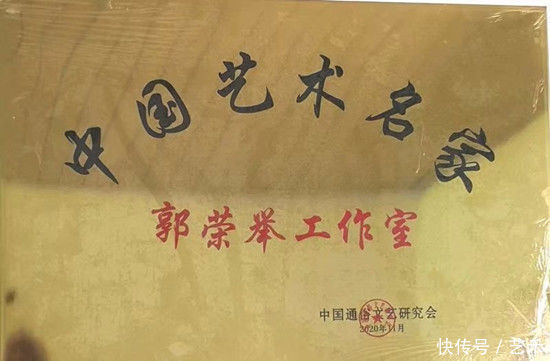 中国艺术名家
郭荣举工作室
中国通俗文艺研究会
2020年11月
快传号/艺术